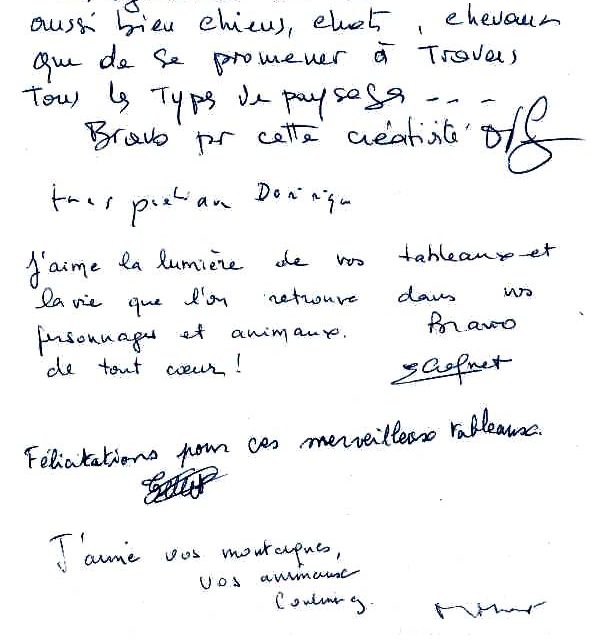 aussi bien chiens, chats, chevaux
que de se promener à Travers
Tous les Types de paysages ---
Bravo pr cette créativité
tres Dominique
J'aime la lumière de vos tableaux et
la vie que l'on retrouve dans vos
personnages et animaux. Bravo
de tout cœur !
Félicitations pour ces merveilleux tableaux.
J'aime vos montagnes,
vos animaux
Continuez.